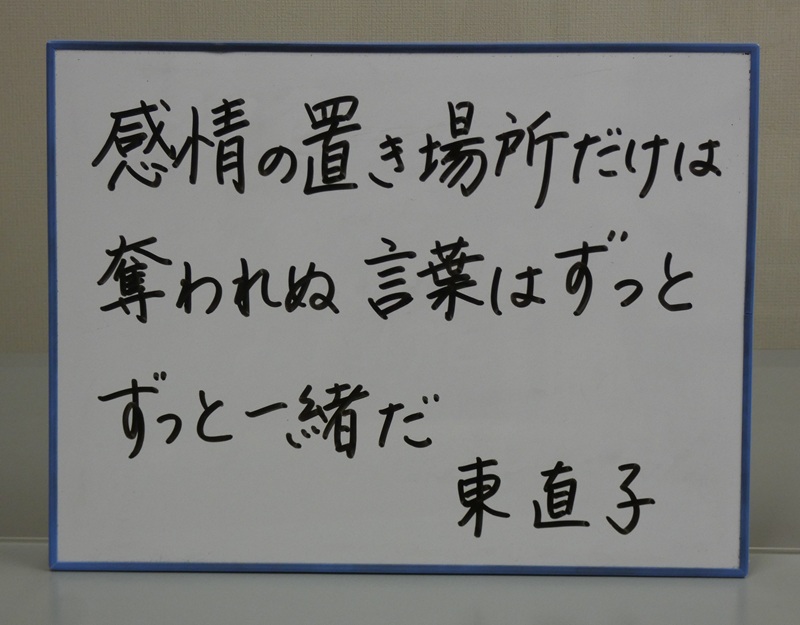 感情の置き場所だけは
奪われぬ 言葉はずっと
ずっと一緒だ
東直子